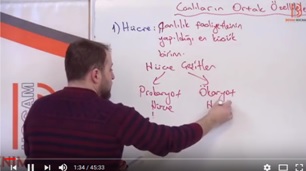 Canlıların Ortak Özellikleri
1) Hücre: Canlılık faaliyetlerinin
yapıldığı en küçük
birim.
Hücre Çeşitleri
Prokaryot Ökaryot
Hücre H
1:34 / 45:33